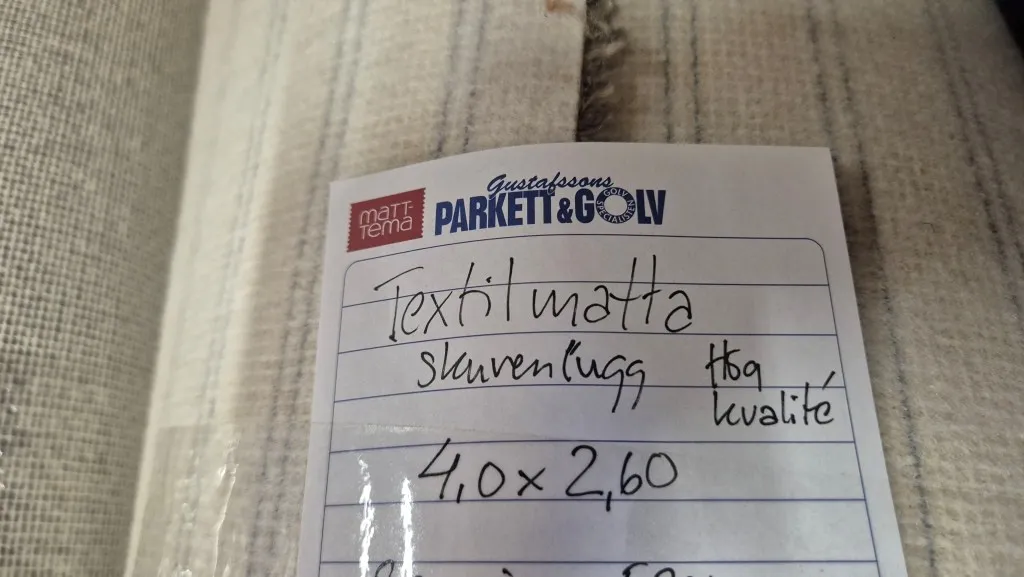 Gustafssons
MATT-
TEMA
PARKETT & GOLV
GOLV SPECIALISTEN
Textilmatta
skuvenlugg Hög
kvalité
4,0 x 2,60